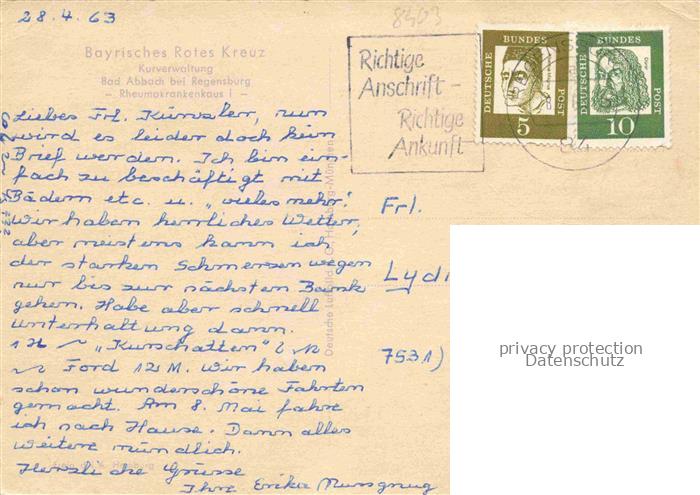 28.4.63
8403
Bayrisches Rotes Kreuz
Kurverwaltung
Bad Abbach bei Regensburg
- Rheumakrankenhaus I -
Liebes Frl. Künzler, nun
wird es leider doch kein
Brief werden. Ich bin ein-
fach zu beschäftigt mit
Bädern etc. u. "vieles mehr."
Wir haben herrliches Wetter,
aber meistens kann ich
der starken Schmerzen wegen
nur bis zur nächsten Bank
gehen. Habe aber schnell
Unterhaltung dann.
"Kurschatten"
Ford 12 M. Wir haben
schon wunderschöne Fahrten
gemacht. Am 8. Mai fahre
ich nach Hause. Dann alles
weitere mündlich.
Herzliche Grüsse
Ihre Erika
Richtige
Anschrift -
Richtige
Ankunft
BUNDES
DEUTSCHE
POST
5
BUNDES
DEUTSCHE
POST
10
84
Frl.
Lydi
7531)
privacy protection
Datenschutz